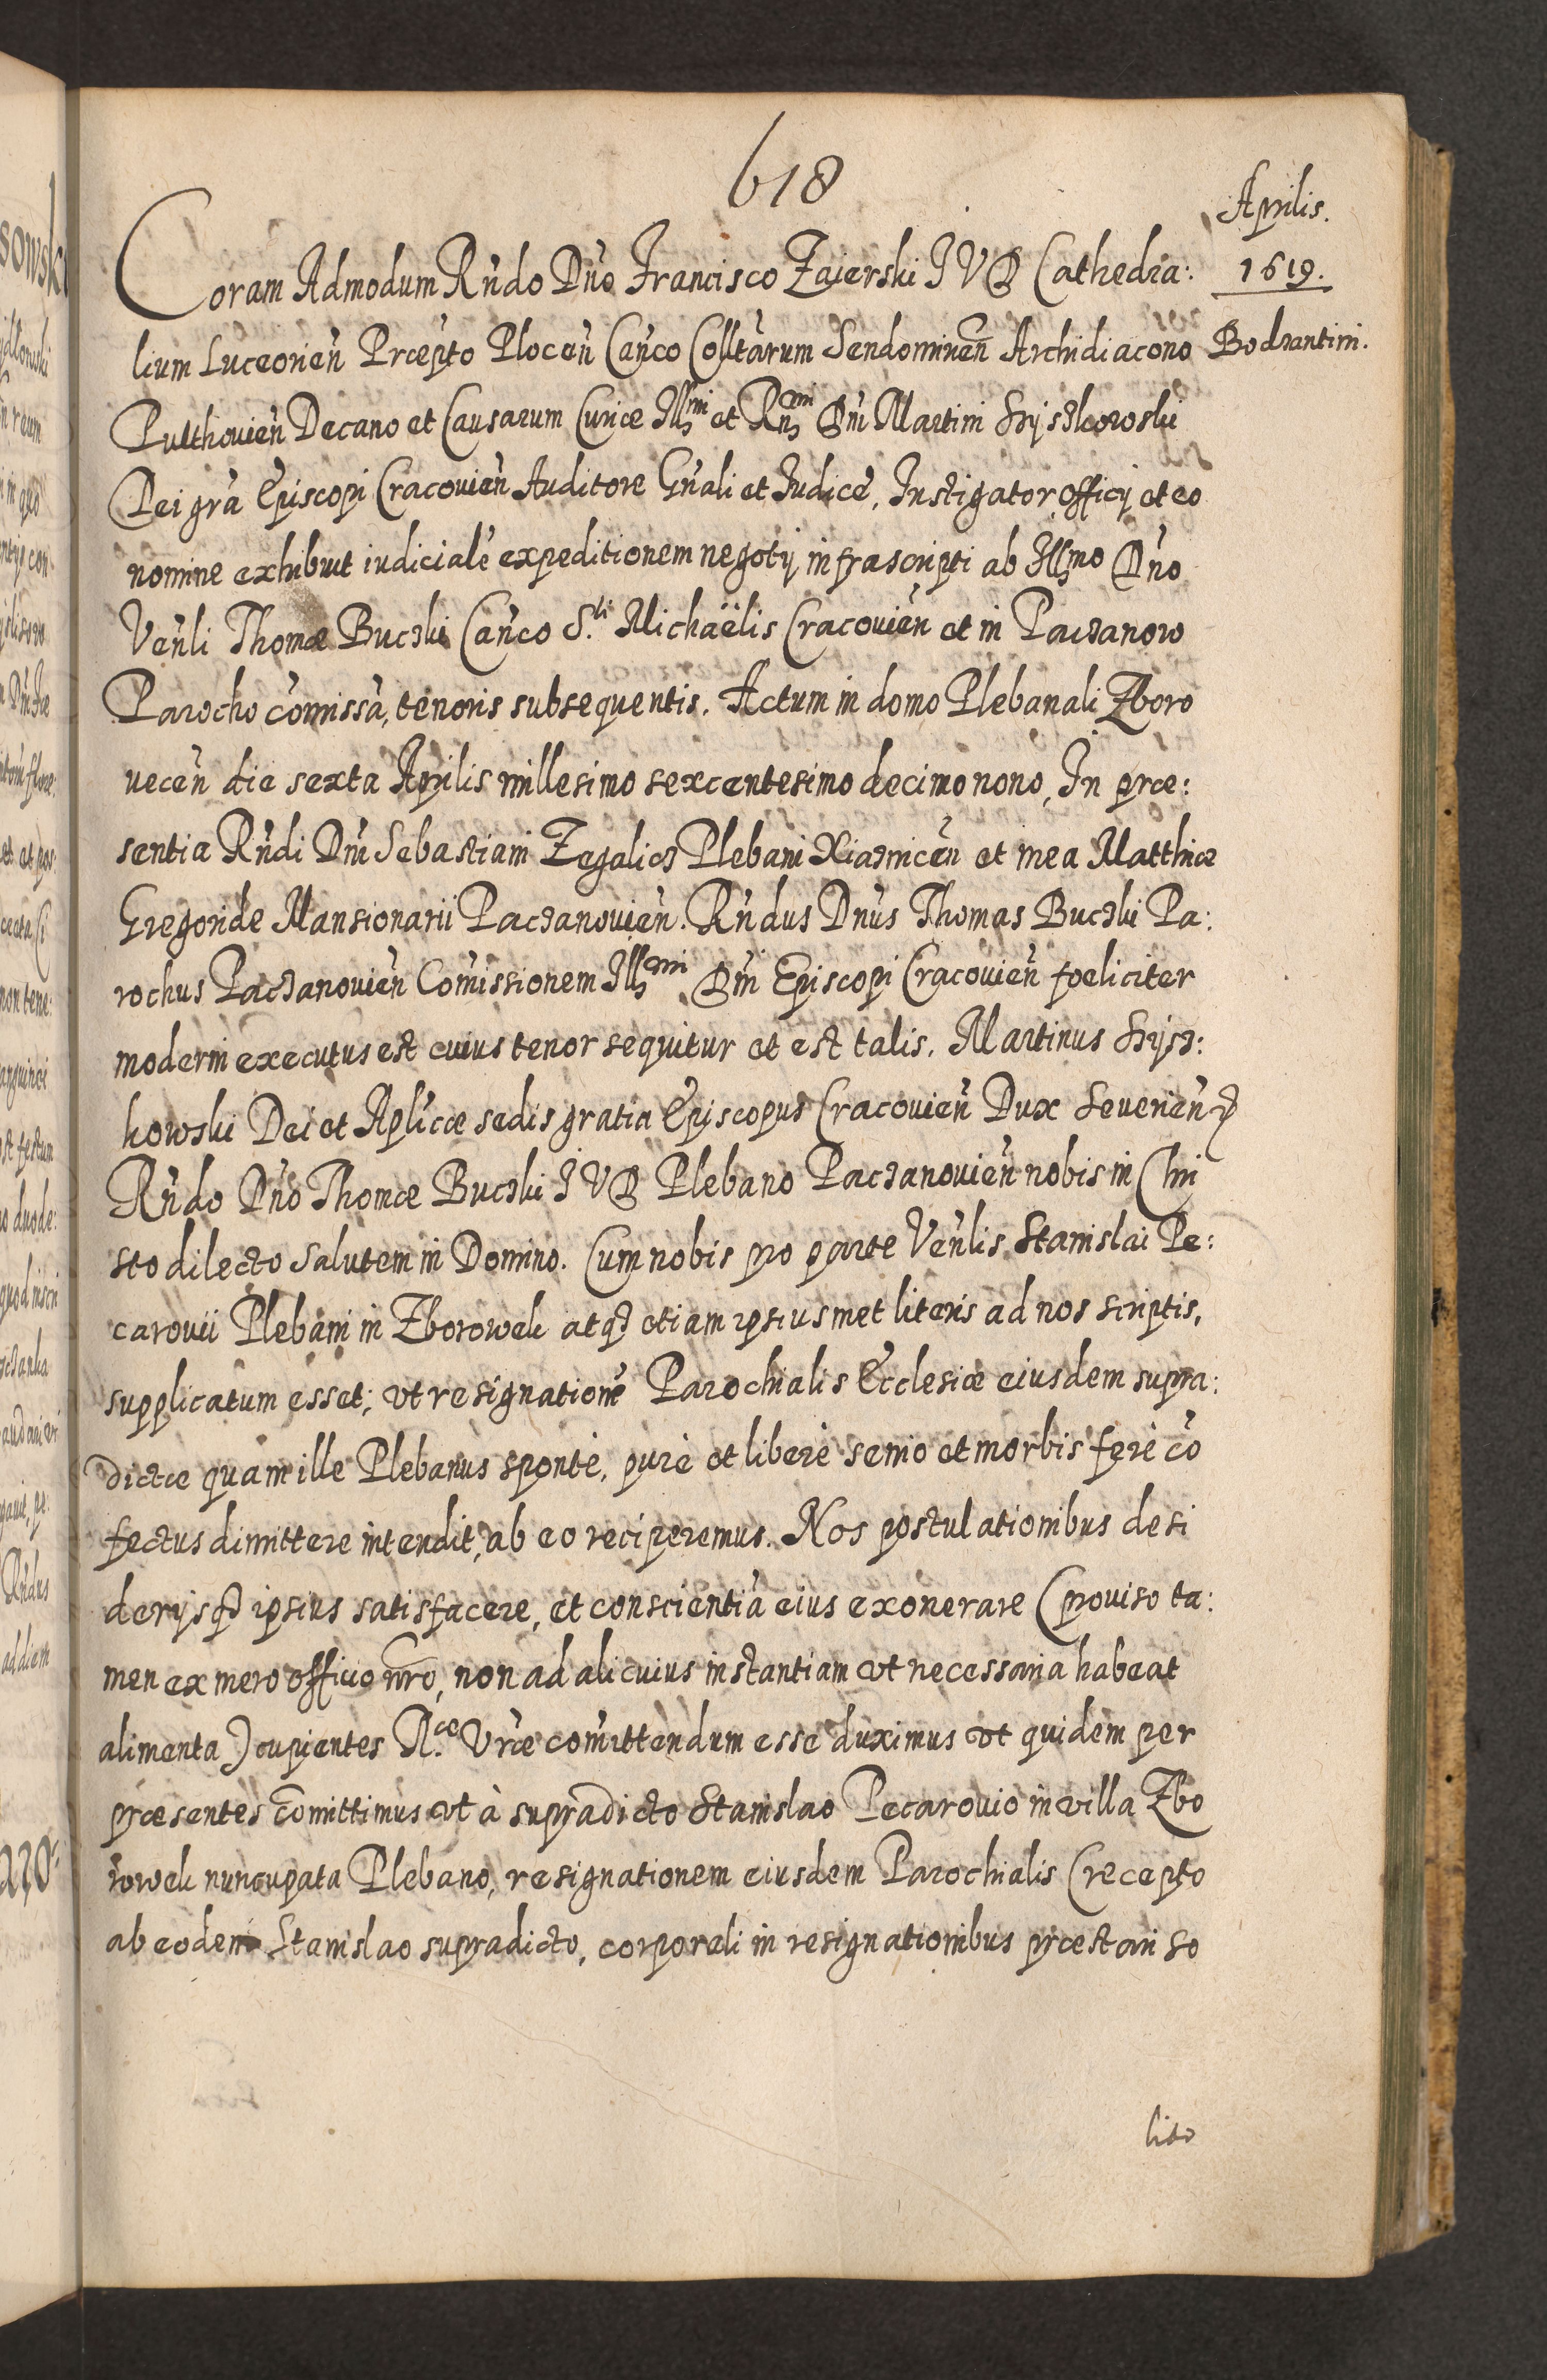 618
Aprilis.
1619.
Bodzantini.
Coram Admodum Rñdo Dño Francisco Zaierski I V D Cathedra:
lium Luceorień Præpto Ploceń Cańco Colltarum Sendomireń Archidiacono
Pulthouień Decano et Causarum Curiæ Illmi et Rńmi Dńi Martini Szyszkowski
Dei grã Episcopi Cracouień Auditore Gńali et Iudicè, Instigator officij et eo
nomine exhibuit iudicialẽ expeditionem negotij infrascripti ab Illmo Dńo
Veńli Thomæ Buczki Cańco S.ti Michaëlis Cracouień et in Paczanow
Parocho comissã, tenoris subsequentis. Actum in domo Plebanali Zboro
veceń die sexta Aprilis millesimo sexcentesimo decimo nono, In præ:
sentia Rńdi Dńi Sebastiani Zegalicz Plebani Xiaznicèń et mea Matthiæ
Gregoride Mansionarii Paczanouień. Rńdus Dńus Thomas Buczki Pa:
rochus Paczanouień Comissionem Illmi Dńi Episcopi Cracouień foeliciter
moderni executus est cuius tenor sequitur et est talis. Martinus Szysz:
kowski Dei et Aplicæ sedis gratia Episcopus Cracouień Dux Seuerień
Rńdo Dńo Thomæ Buczki I V D Plebano Paczanouień nobis in Chri
sto dilecto Salutem in Domino. Cum nobis pro parte Veńlis Stanislai Pe:
carouii Plebani in Zborowek atq3 etiam ipsiusmet literis ad nos scriptis,
supplicatum esset; vt resignationẽ Parochialis Ecclesiæ eiusdem supra:
dictæ quam ille Plebanus spontè, purè et liberè senio et morbis ferè cõ
fectus dimittere intendit, ab eo reciperemus. Nos postulationibus desi
derijsq3 ipsius satisfacere, et conscientiã eius exonerare (prouiso ta:
men ex mero officio nrõ, non ad alicuius instantiam vt necessaria habeat
alimenta) cupientes R.ae Vræ comittendum esse duximus vt quidem per
præsentes comittimus vt à supradicto Stanislao Pecarouio in villa Zbo
rowek nuncupata Plebano, resignationem eiusdem Parochialis (recepto
ab eodem Stanislao supradicto, corporali in resignationibus præstari so
lito